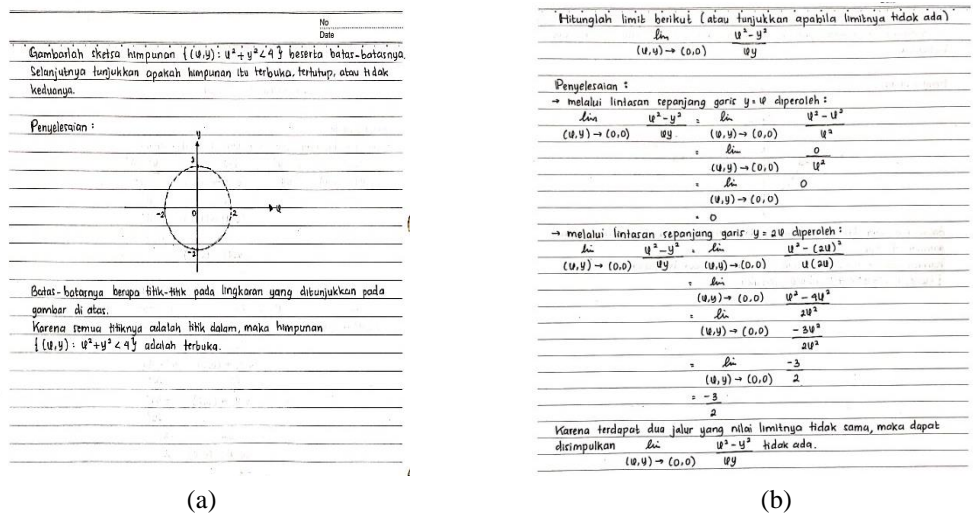 No
Date
Gambarlah sketsa himpunan {(x,y) : x² + y² < 4} beserta batas-batasnya.
Selanjutnya tunjukkan apakah himpunan itu terbuka, tertutup, atau tidak
keduanya.
Penyelesaian :
y
2
-2 0 2 x
-2
Batas-batasnya berupa titik-titik pada lingkaran yang ditunjukkan pada
gambar di atas.
Karena semua titiknya adalah titik dalam, maka himpunan
{(x,y) : x²+y² < 4} adalah terbuka.
(a)
Hitunglah limit berikut (atau tunjukkan apabila limitnya tidak ada)
lim x²-y²
(x,y) → (0,0) xy
Penyelesaian :
→ melalui lintasan sepanjang garis y = x diperoleh :
lim x²-y² = lim x² - x²
(x,y) → (0,0) xy (x,y) → (0,0) x²
= lim 0
(x,y) → (0,0) x²
= lim 0
(x,y) → (0,0)
= 0
→ melalui lintasan sepanjang garis y = 2x diperoleh :
lim x²-y² = lim x² - (2x)²
(x,y) → (0,0) xy (x,y) → (0,0) x(2x)
= lim
(x,y) → (0,0) x² - 4x²
= lim 2x²
(x,y) → (0,0) -3x²
2x²
= lim -3
(x,y) → (0,0) 2
= -3
2
Karena terdapat dua jalur yang nilai limitnya tidak sama, maka dapat
disimpulkan lim x²-y² tidak ada.
(x,y) → (0,0) xy
(b)